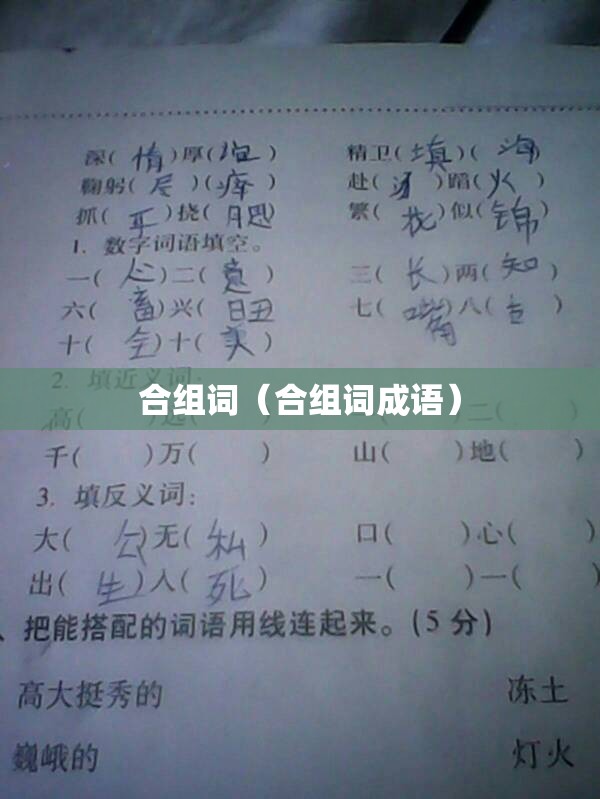 深( 情 )厚( 谊 ) 精卫( 填 )( 海 )
鞠躬( 尽 )( 瘁 ) 赴( )蹈( 火 )
抓( 耳 )挠( 腮 ) 繁( 花 )似( 锦 )
1. 数字词语填空。
一( 心 )二( 意 ) 三( 长 )两( 知 )
六( 畜 )兴( 旺 ) 七( 嘴 )八( 舌 )
十( 全 )十( 美 )
2. 填近义词:
合组词（合组词成语）
高( ) ( ) )二( )
千( )万( ) 山( )地( )
3. 填反义词:
大( 公 )无( 私 ) 口( )心( )
出( 生 )入( 死 ) 一( )一( )
、把能搭配的词语用线连起来。(5分)
高大挺秀的 冻土
巍峨的 灯火